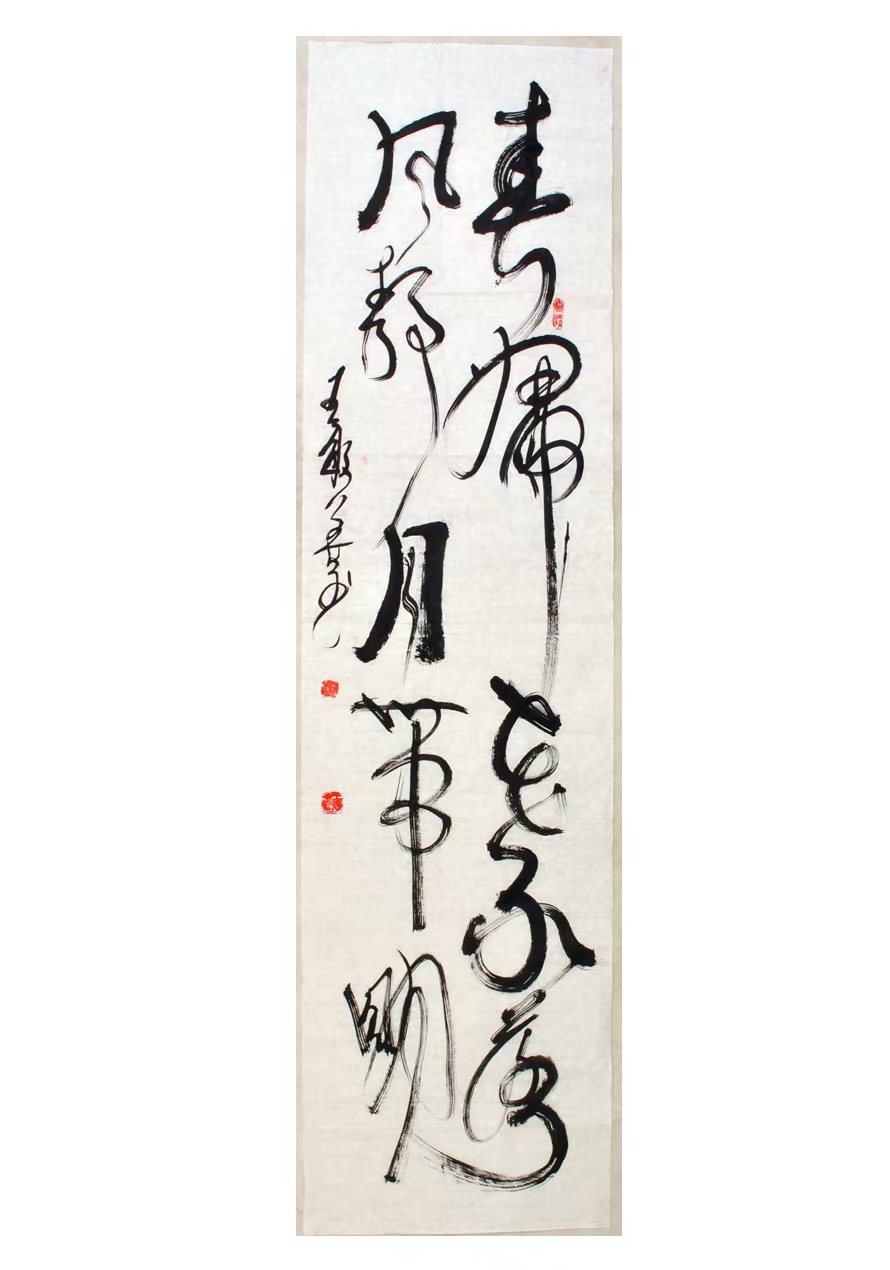 春歸花不落
风静月常明